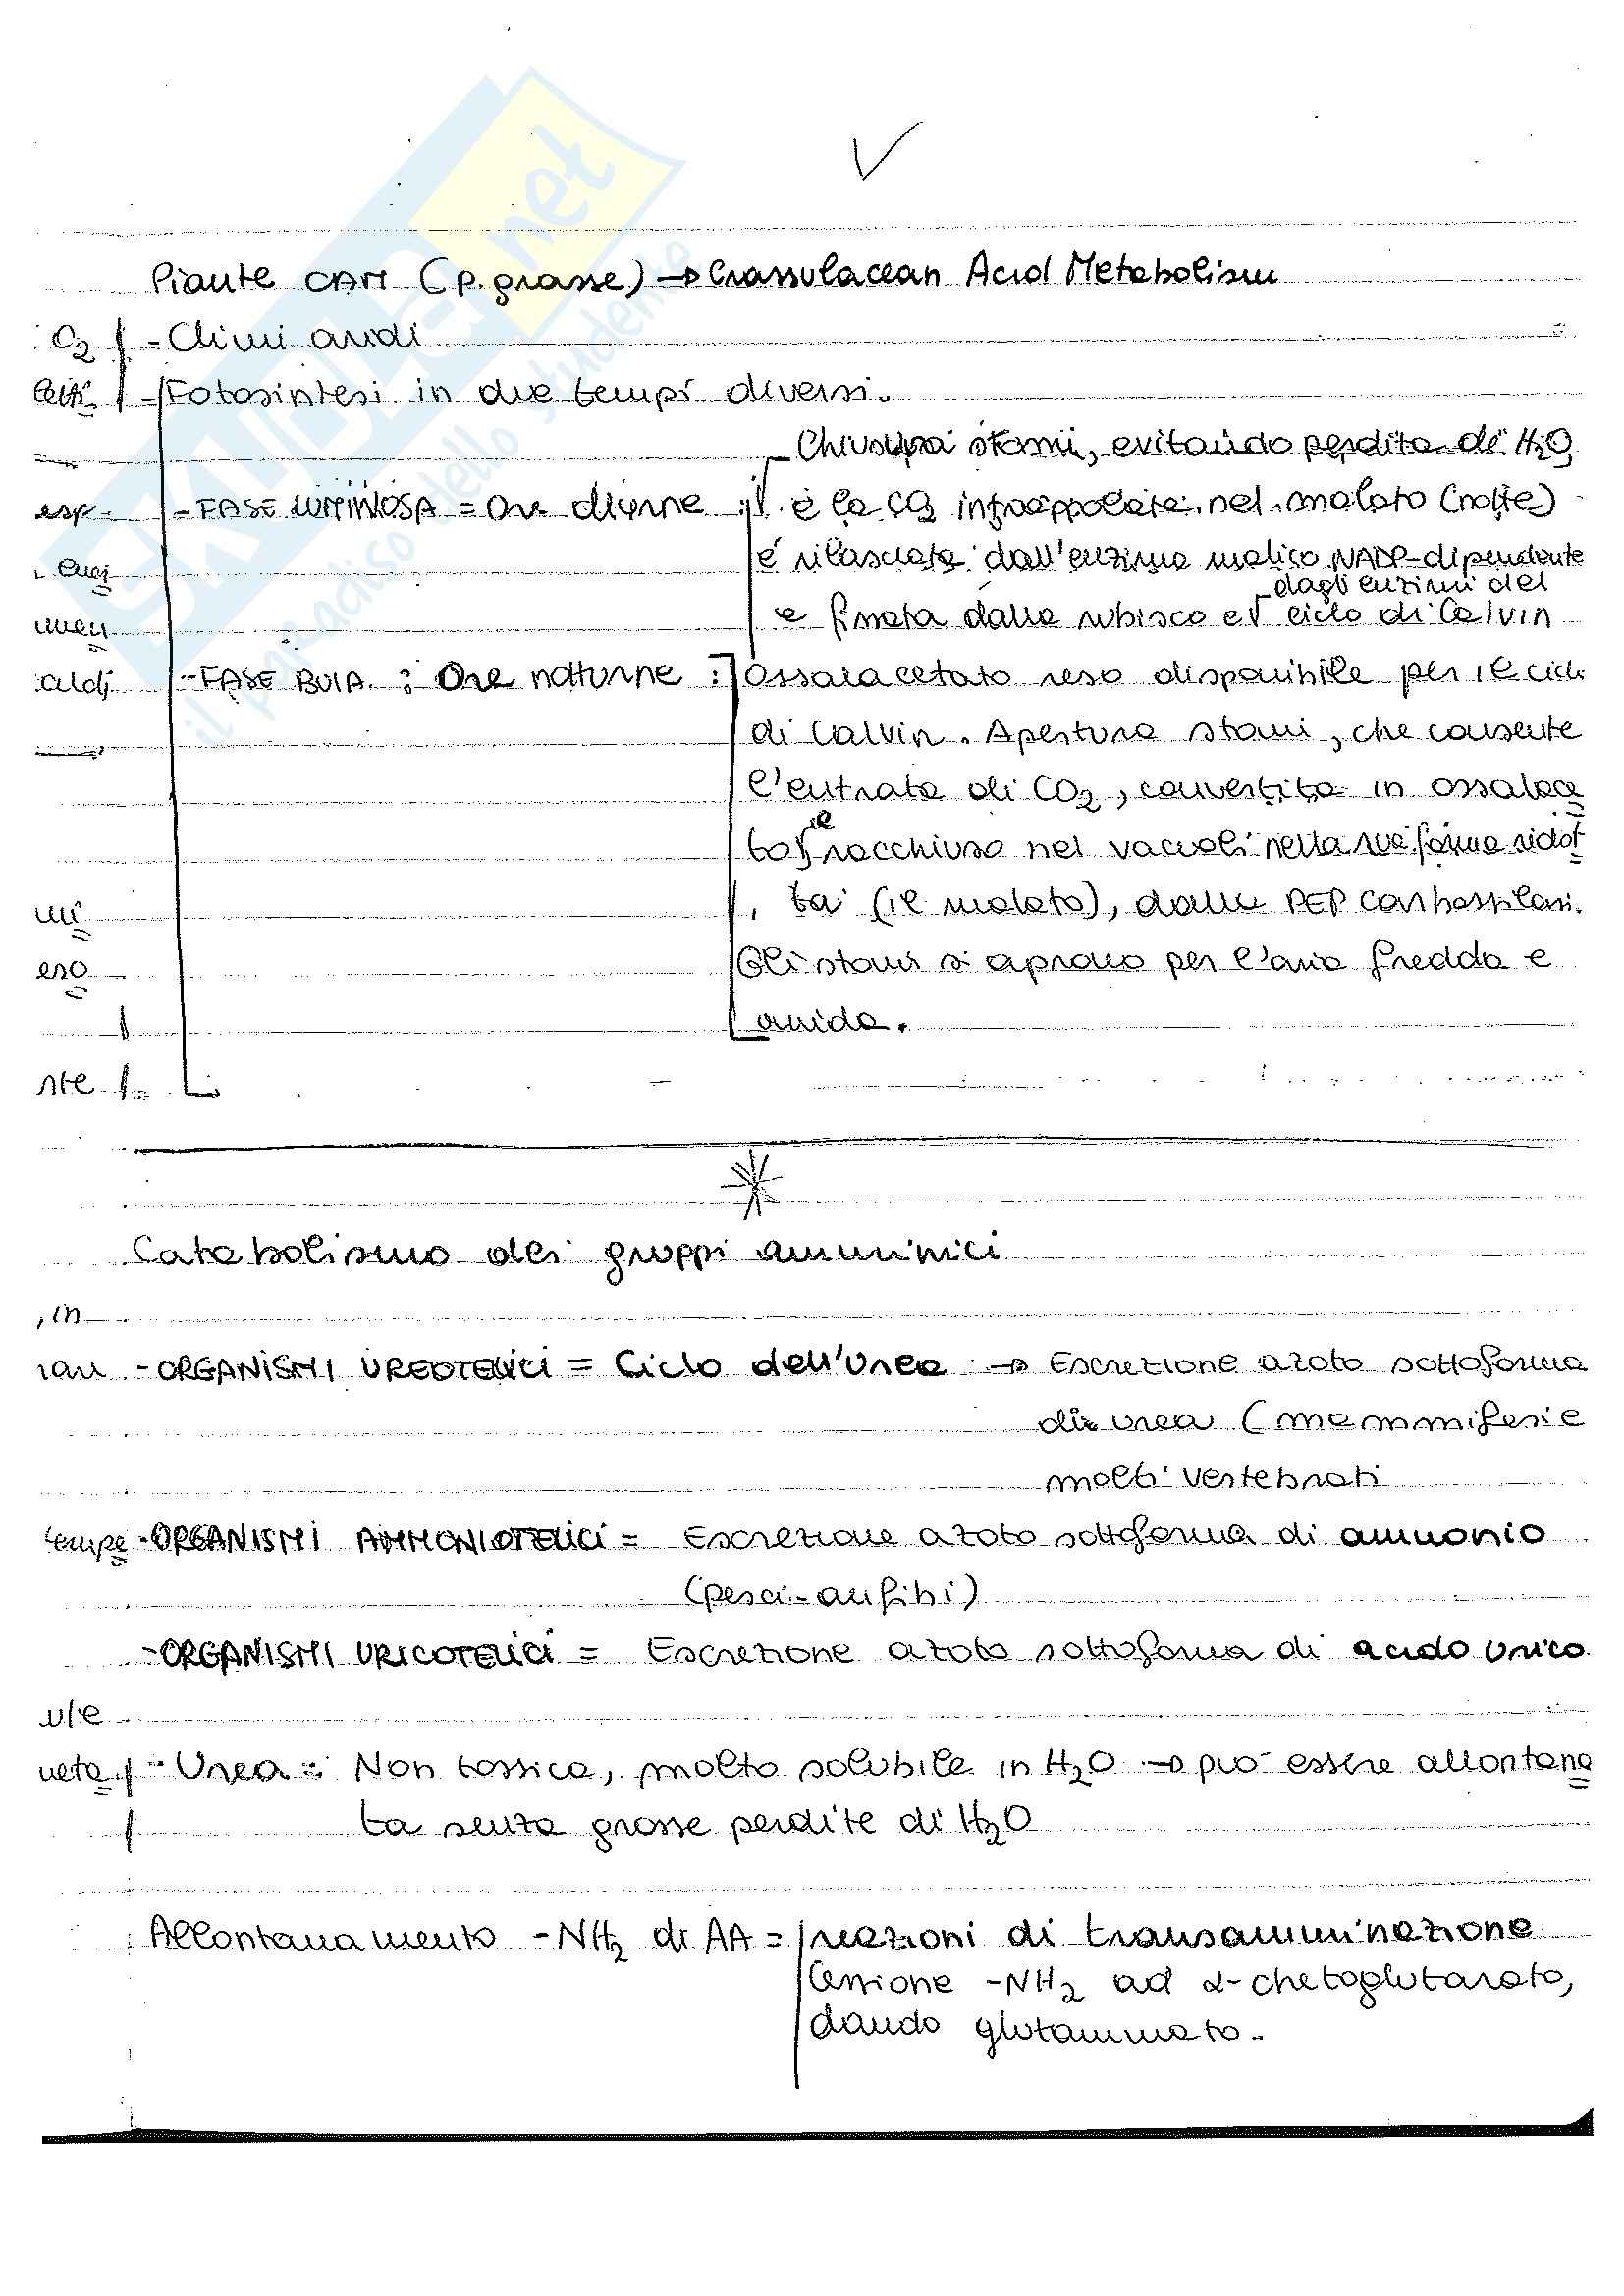 SKUOLA.net
il paradiso dello studente
Piante CAM (p. grasse) → Crassulacean Acid Metabolism
O2 - Climi aridi
- Fotosintesi in due tempi diversi.
Chiusura stomi, evitando perdita di H2O
esp. - FASE LUMINOSA = Ore diurne : e la CO2 intrappolata nel malato (notte)
è rilasciata dall'enzima malico NADP-dipendente
dagli enzimi del
e fissata dalla rubisco e ciclo di Calvin
- FASE BUIA : Ore notturne : Ossalacetato reso disponibile per il ciclo
di Calvin. Apertura stomi, che consente
l'entrata di CO2, convertita in ossalace
to e racchiuso nei vacuoli nella sua forma ridot
ta (il malato), dalla PEP carbossilasi.
Gli stomi si aprono per l'aria fredda e
umida.
eso
nte
Catabolismo dei gruppi amminici
, in
- ORGANISMI UREOTELICI = Ciclo dell'Urea → Escrezione azoto sottoforma
di urea (mammiferi e
molti vertebrati
tempe - ORGANISMI AMMONIOTELICI = Escrezione azoto sottoforma di ammonio
(pesci-anfibi)
- ORGANISMI URICOTELICI = Escrezione azoto sottoforma di acido urico
neta - Urea = Non tossica, molto solubile in H2O → può essere allontana
ta senza grosse perdite di H2O
Allontanamento -NH2 di AA = reazioni di transamminazione
Cessione -NH2 ad α-chetoglutarato,
dando glutammato.